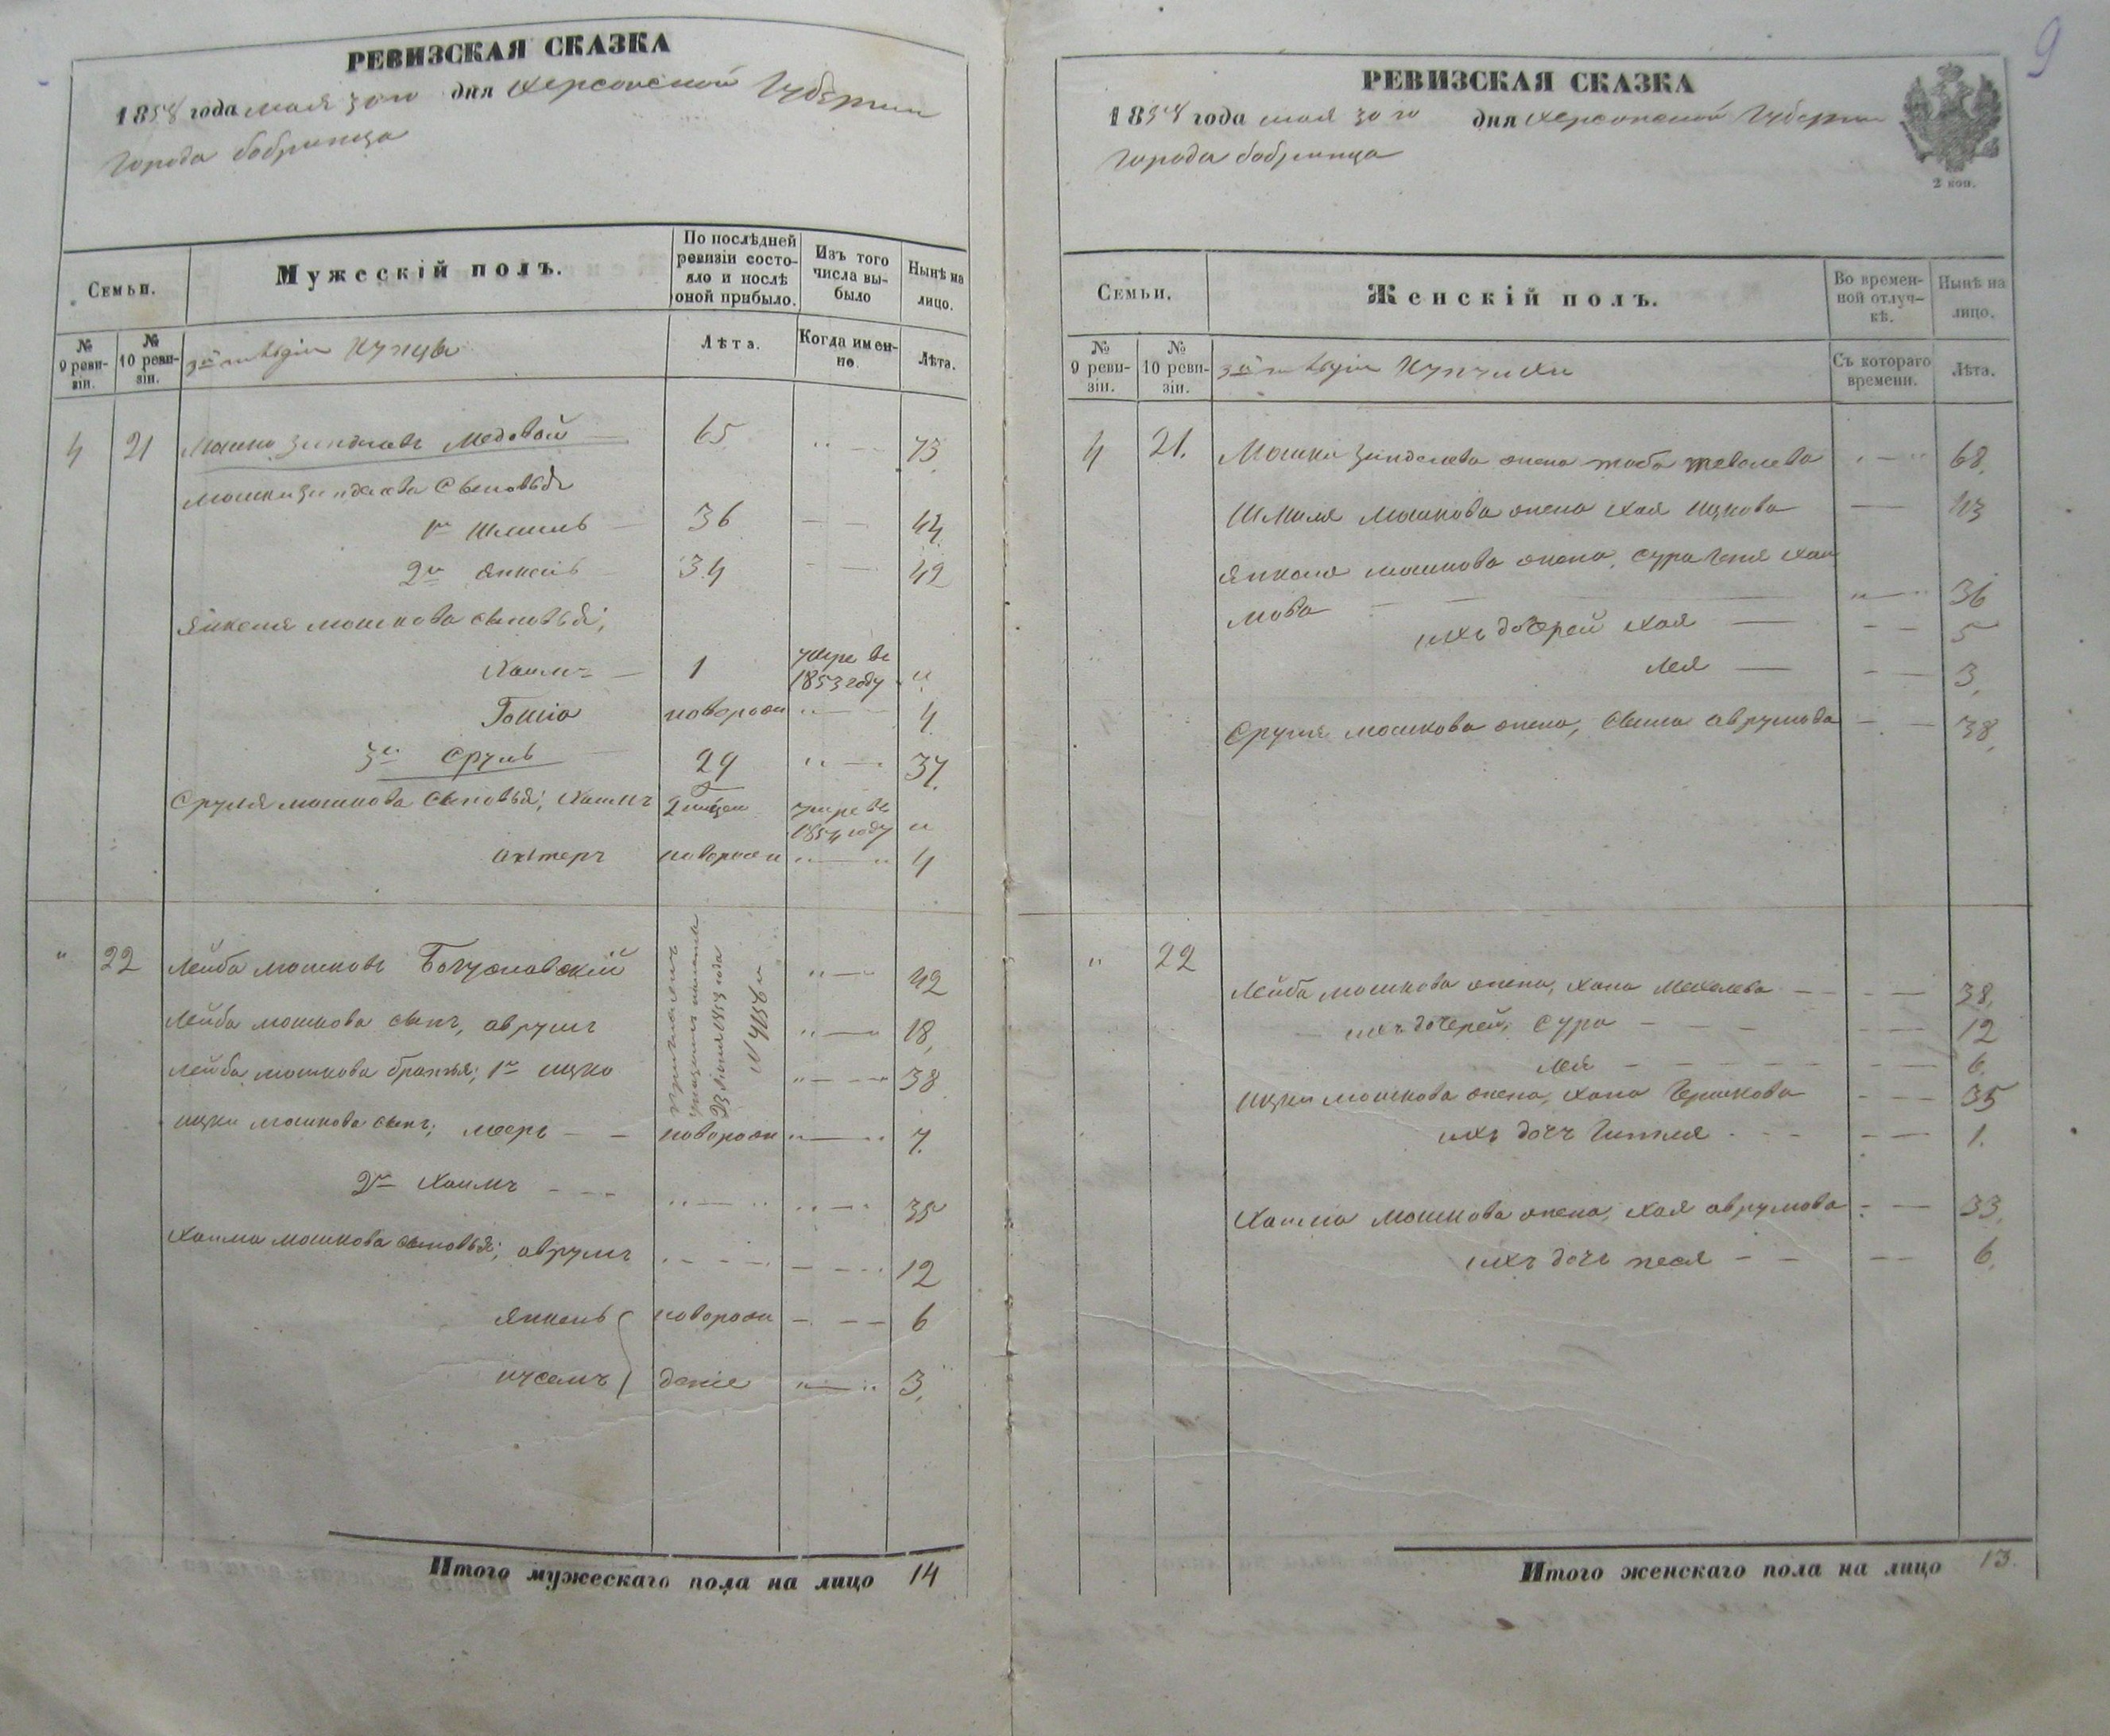 РЕВИЗСКАЯ СКАЗКА
1858 года мая 30го дня Херсонской Губернии
Города Бобринца
Семьи.
Мужескій полъ.
По послѣдней ревизіи состояло и послѣ оной прибыло.
Изъ того числа выбыло
Нынѣ на лицо.
№ 9 ревизіи.
№ 10 ревизіи.
3й гильдіи Купцы
Лѣта.
Когда именно.
Лѣта.
4 21 Мошко Зинделевъ Медовой 65 73.
Мошки Зинделева Сыновья
1й Шмиль 36 44
2й Янкель 34 42
Янкеля Мошкова сыновья;
Хаимъ 1 умре въ 1853 году "
новорож 4
3й Сруль 29 37.
Сруля Мошкова Сыновья; Хаимъ 2 умре въ 1854 году "
новорож 4
" 22 Лейба Мошковъ 42
Лейба Мошкова сынъ, Аврумъ 18,
Лейба Мошкова братья; 1й Ицко 38
Ицки Мошкова сынъ; Мееръ новорож 7.
2й Хаимъ 35
Хаима Мошкова сыновья; Аврумъ 12
Янкель новорож 6
деніе 3,
Итого мужескаго пола на лицо 14
9
РЕВИЗСКАЯ СКАЗКА
1858 года мая 30го дня Херсонской Губернии
Города Бобринца
2 коп.
Семьи.
Женскій полъ.
Во временной отлучкѣ.
Нынѣ на лицо.
№ 9 ревизіи.
№ 10 ревизіи.
3й гильдіи Купчихи
Съ котораго времени.
Лѣта.
4 21. Мошки Зинделева жена Тоба 68.
Шмиля Мошкова жена Хая Ицкова 43
Янкеля Мошкова жена, Сура Геня Хаи
мова 36
ихъ дочерей Хая 5
Лея 3,
Сруля Мошкова жена, Аврумова 38,
" 22
Лейба Мошкова жена, Хана Мехелева 38,
ихъ дочерей; Сура 12
Лея 6,
Ицки Мошкова жена, Хана Гершкова 35
ихъ дочь Гитля 1.
Хаима Мошкова жена, Хая Аврумова 33,
ихъ дочь Песя 6,
Итого женскаго пола на лицо 13.